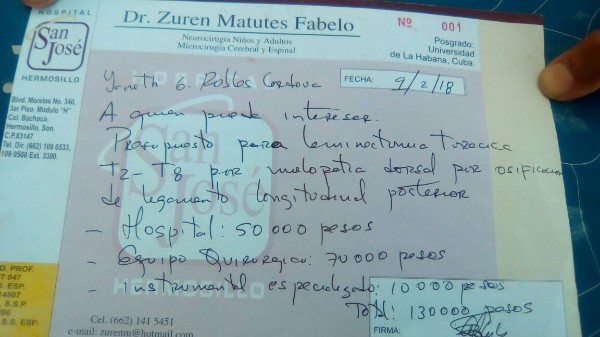 HOSPITAL
San
José
HERMOSILLO
Blvd. Morelos No. 340,
3er Piso. Módulo "H"
Col. Bachoco.
Hermosillo, Son.
C.P.83147
Tel. Dir: (662) 109 0533,
109 0500 Ext. 3300.
Dr. Zuren Matutes Fabelo
Neurocirugía Niños y Adultos
Microcirugía Cerebral y Espinal
Nº 001
Posgrado:
Universidad
de La Habana, Cuba.
Yaneth G. Robles Cordova
FECHA: 9/2/18
A quien pueda interesar:
Presupuesto para laminectomia toracica
T2-T8 por mielopatia dorsal por osificacion
de ligamento longitudinal posterior
- Hospital: 50 000 pesos
- Equipo Quirurgico: 70 000 pesos
- Instrumental especializado: 10 000 pesos
Total: 130000 pesos
D. PROF.
7 047
D. ESP.
S.S.P.
S.S. ESP.
HERMOSILLO
Cel. (662) 141 5451
e-mail: zurenm@hotmail.com
FIRMA: